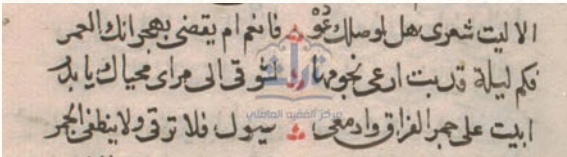 الا ليت شعرى هل لوصلك عوْد فانعم ام يقضى بهجرانك العمر
فكم ليلة قد بت ارعى نجومها لشوقى الى مراى محياك يا بدر
ابيت على جمر الفراق وادمعى سيول فلا ترقى ولا ينطفى الجمر
تراث
مركز الفقيه العاملي